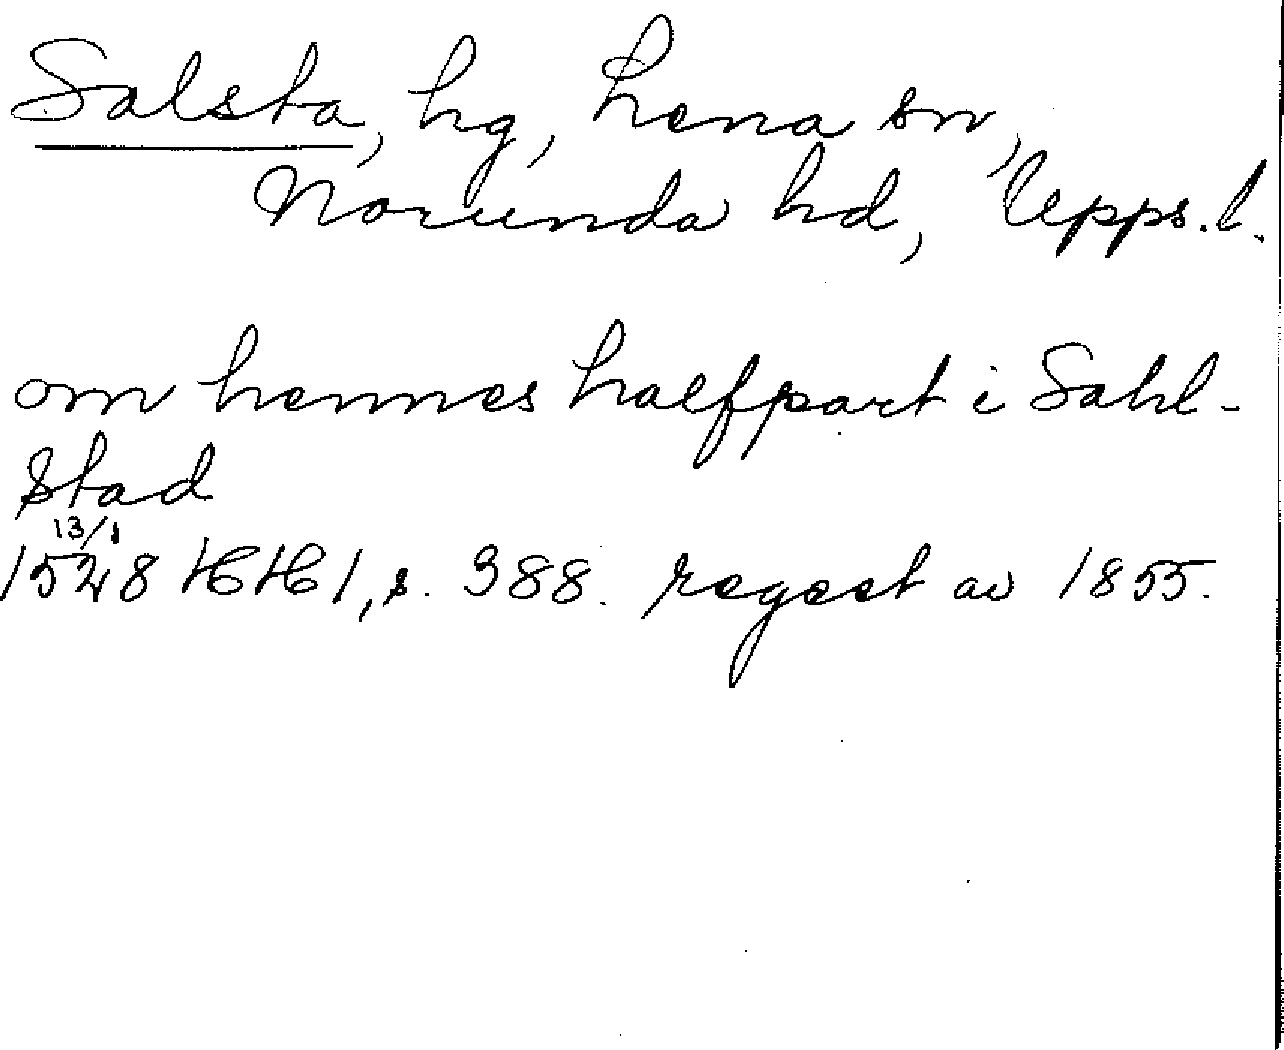 Salsta, hg, Lena sn,
Norunda hd, Upps. l.
om hennes halfpart i Sahl-
stad
13/1
1528 HH 1, s. 388. regest av 1855.